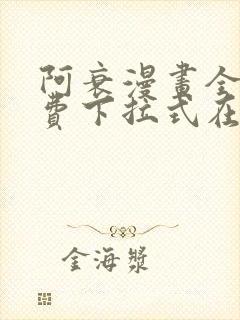 阿衰漫畫全
費下拉式在
金海漿